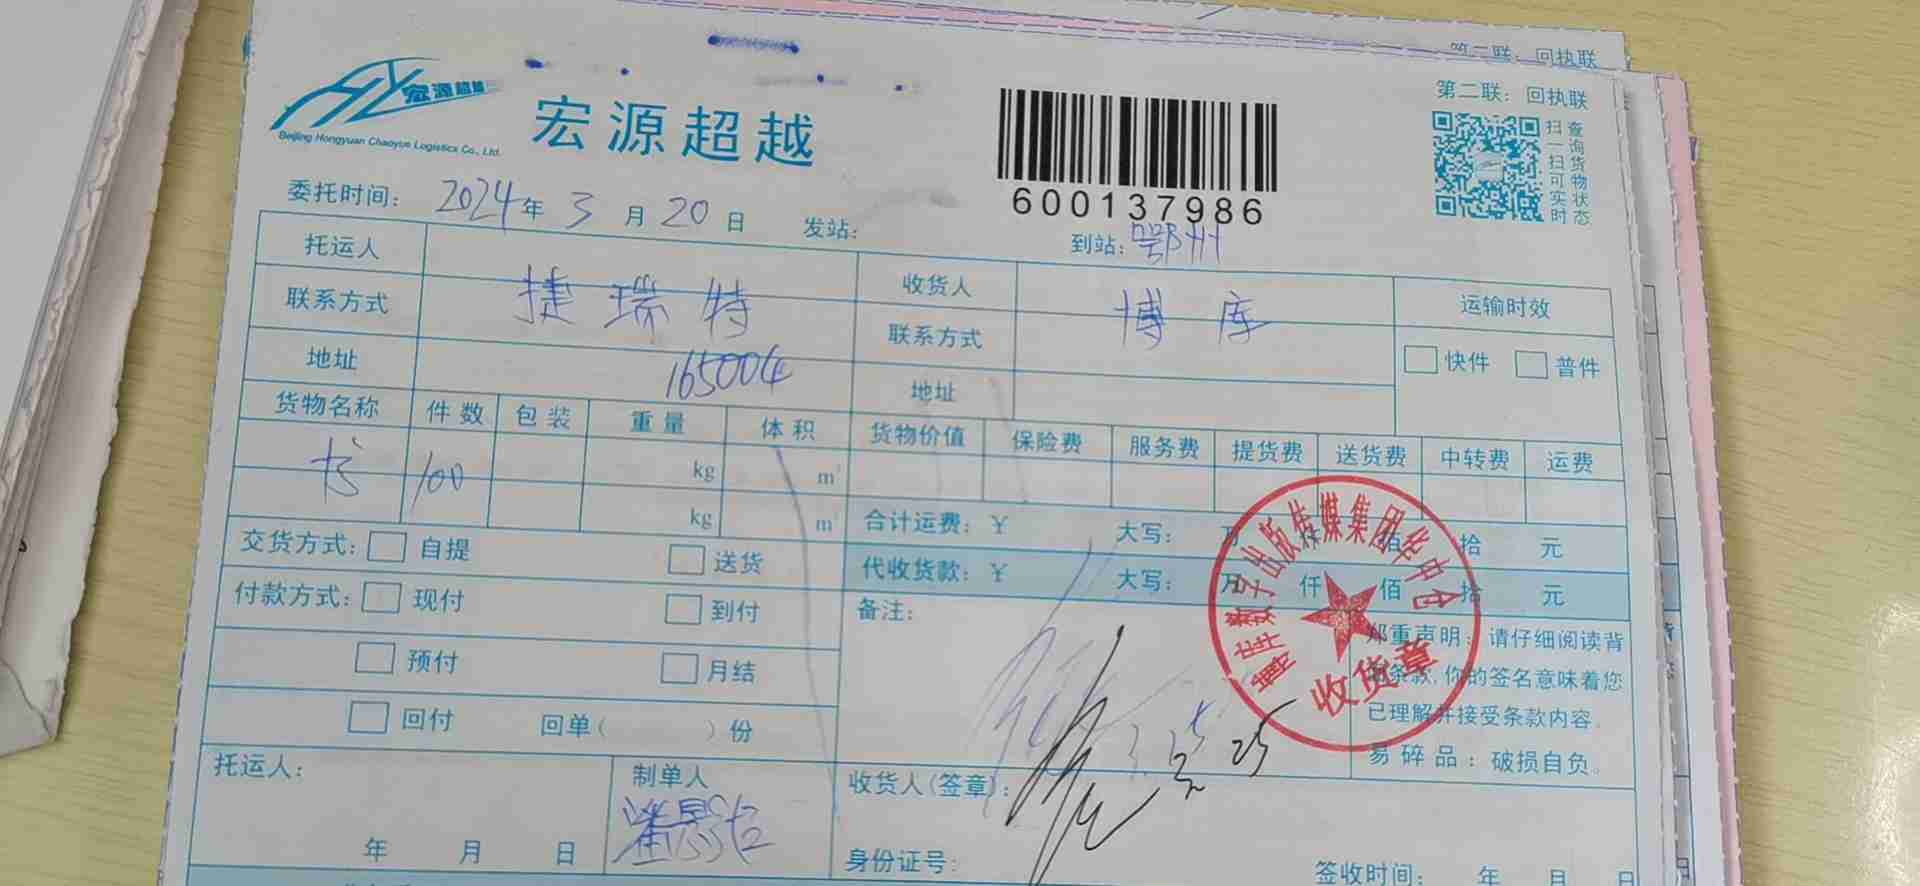 第二联：回执联
宏源超越
Beijing Hongyuan Chaoyue Logistics Co., Ltd.
宏源超越
600137986
第二联：回执联
扫一扫可实时
查询货物状态
委托时间：2024年3月20日 发站： 到站：鄂州
托运人 捷瑞特 收货人 博库 运输时效
联系方式 联系方式 快件 普件
地址 165004 地址
货物名称 件数 包装 重量 体积 货物价值 保险费 服务费 提货费 送货费 中转费 运费
书 100 kg m³
kg m³ 合计运费：¥ 大写：万 佰 拾 元
交货方式：自提 送货 代收货款：¥ 大写：万 仟 佰 拾 元
付款方式：现付 到付 备注：
预付 月结
回付 回单（ ）份
郑重声明：请仔细阅读背
条款,你的签名意味着您
已理解并接受条款内容。
易碎品：破损自负。
出版传媒集团华中仓
收货章
3.25
托运人： 制单人 收货人(签章)：
年 月 日 身份证号： 签收时间： 年 月 日